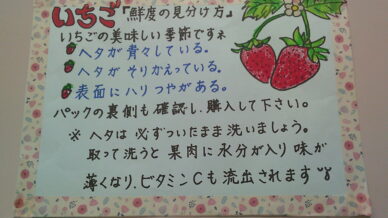 いちご『鮮度の見分け方』
いちごの美味しい季節ですネ
ヘタが青々している。
ヘタが そりかえっている。
表面にハリ つやがある。
パックの裏側も確認し、購入して下さい。
※ ヘタは 必ずついたまま 洗いましょう。
取って洗うと 果肉に水分が入り 味が
薄くなり、ビタミンCも流出されます